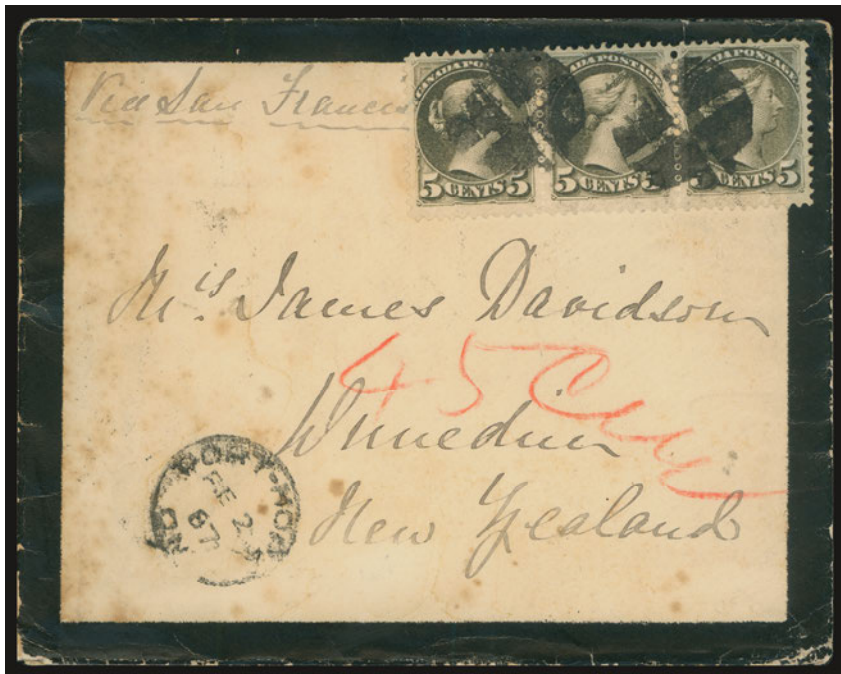 Via San Francis
CANADA POSTAGE
5 CENTS 5
CANADA POSTAGE
5 CENTS 5
CANADA POSTAGE
5 CENTS 5
Mrs. James Davidson
45 Cen
Dunedin
New Zealand
PORT-HOP
FE 2
87